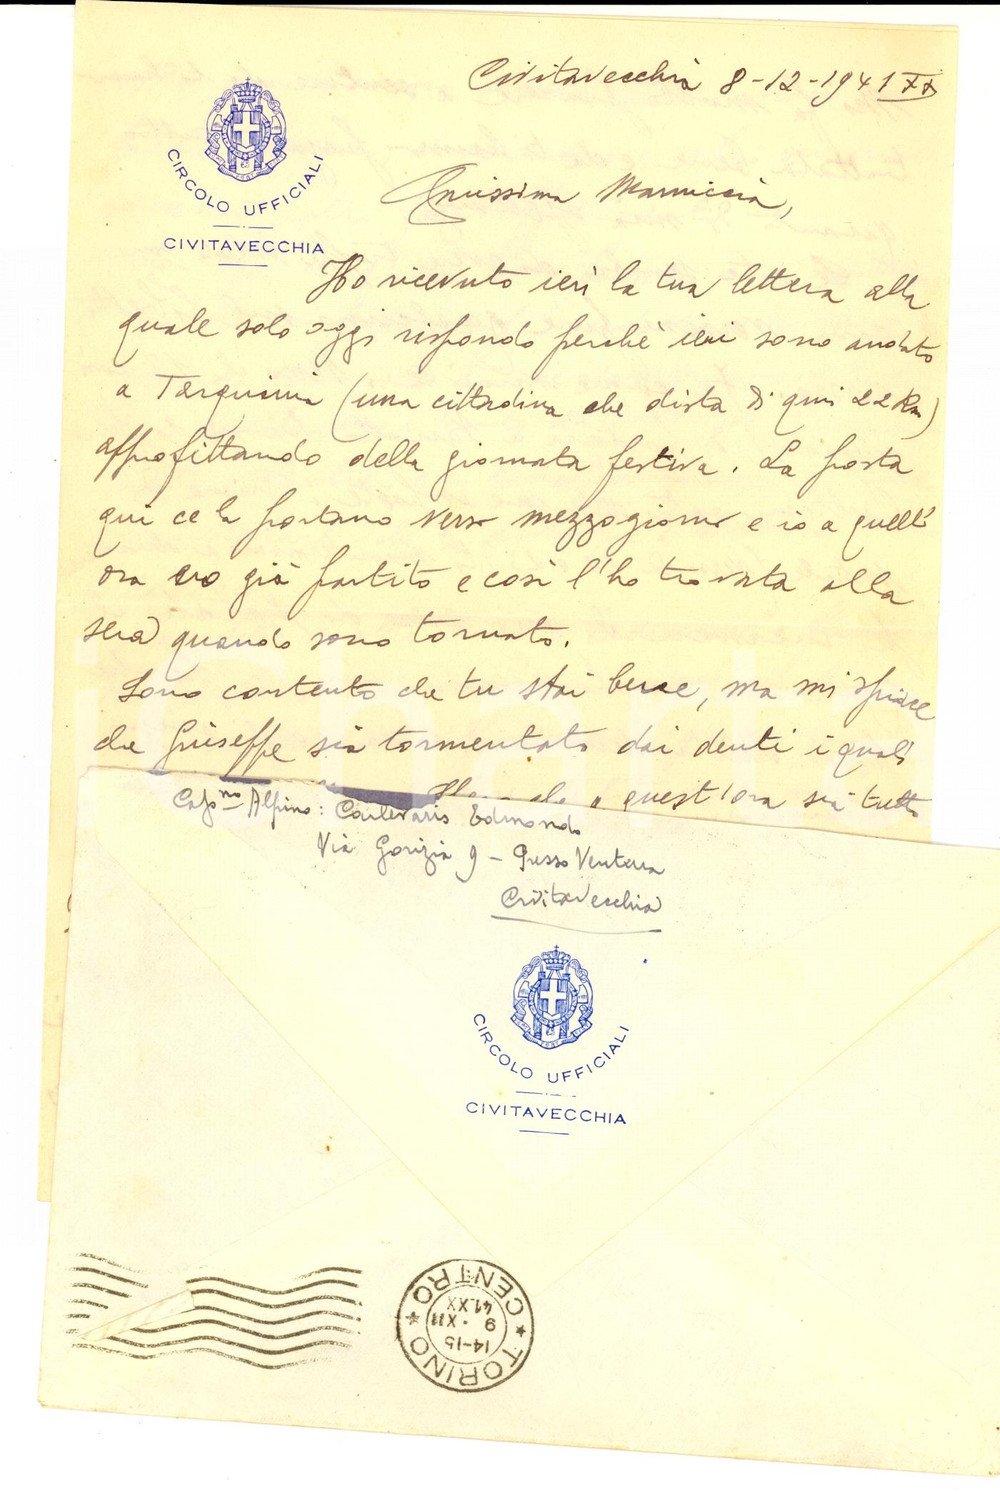 CIRCOLO UFFICIALI
CIVITAVECCHIA
Civitavecchia 8-12-1941 XX
Carissima Mammiccia,
Ho ricevuto ieri la tua lettera alla
quale solo oggi rispondo perchè ieri sono andato
a Tarquinia (una cittadina che dista di qui 22 Km)
approfittando della giornata festiva. La posta
qui ce la portano verso mezzogiorno e io a quell'
ora ero già partito e così l'ho trovata alla
sera quando sono tornato.
Sono contento che tu stai bene, ma mi spiace
che Giuseppe sia tormentato dai denti i quali
a quest'ora sia tutto
Cap.no Alpino: Edmondo
Via Gorizia 9 - Presso Ventura
Civitavecchia
CIRCOLO UFFICIALI
CIVITAVECCHIA
TORINO CENTRO
14-15
9 . XII
41.XX